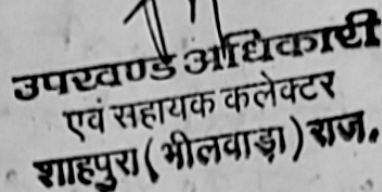 उपखण्ड अधिकारी
एवं सहायक कलेक्टर
शाहपुरा (भीलवाड़ा) राज.